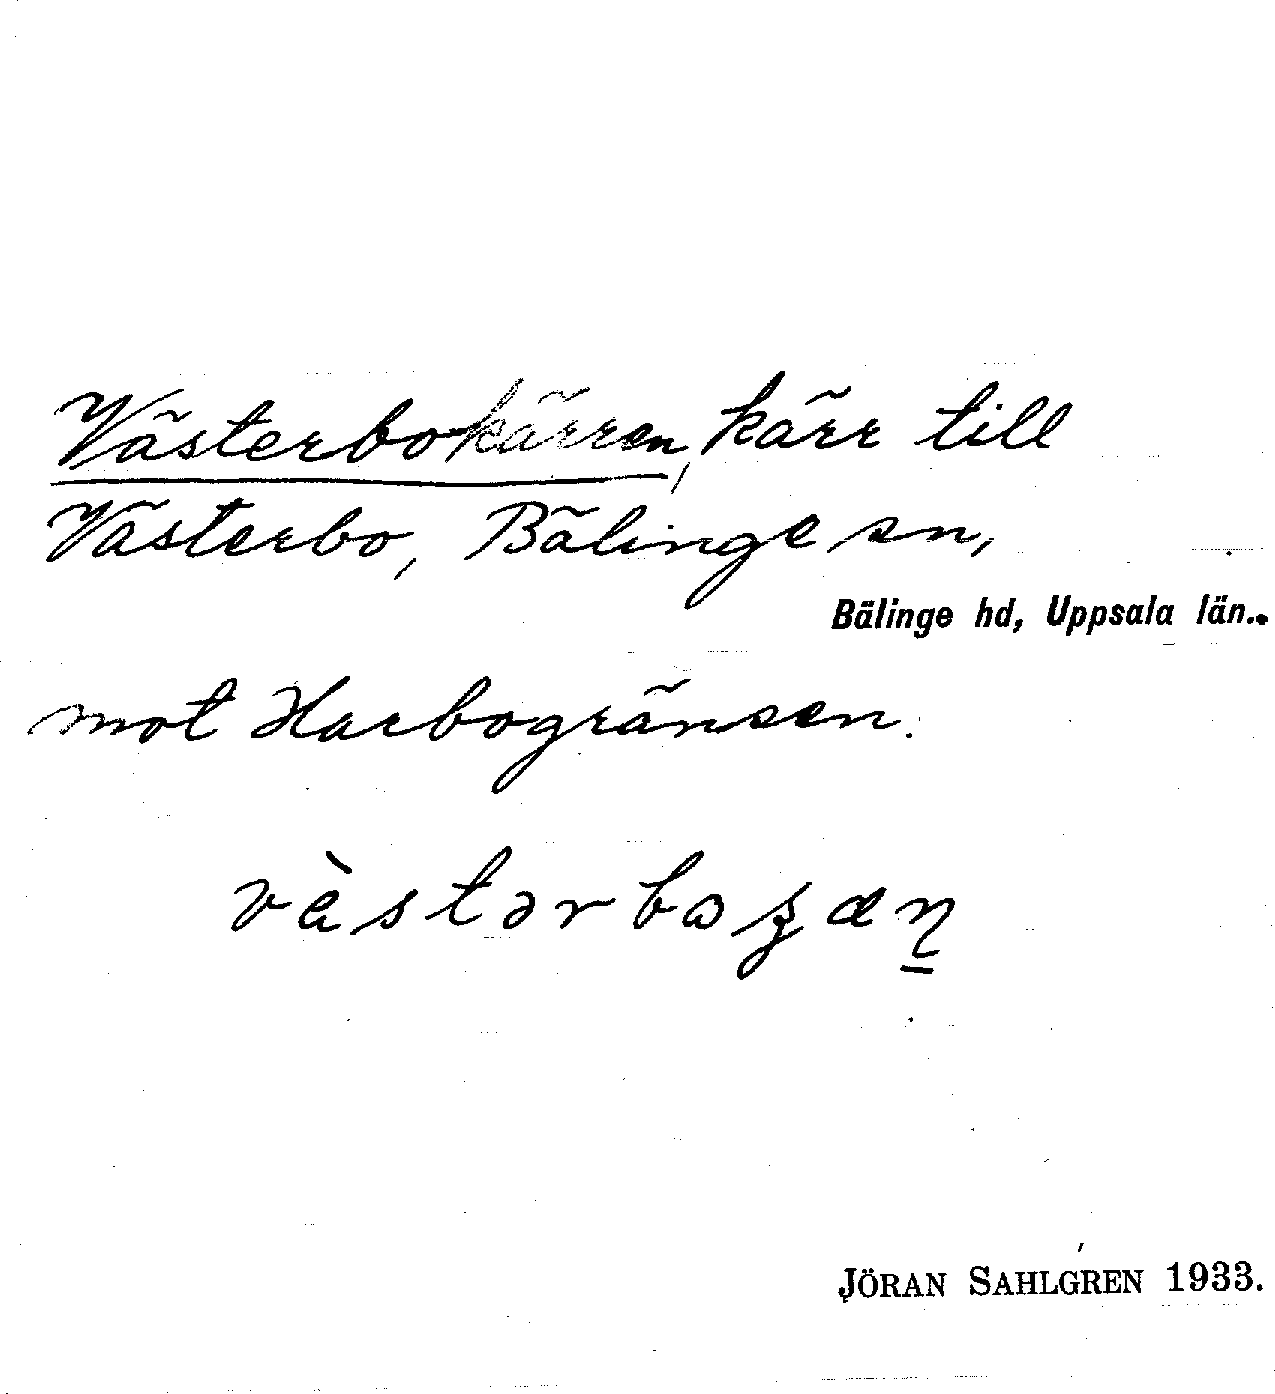 Västerbokärren, kärr till
Västerbo, Bälinge sn,
Bälinge hd, Uppsala län.
mot Harbogränsen.
JÖRAN SAHLGREN 1933.